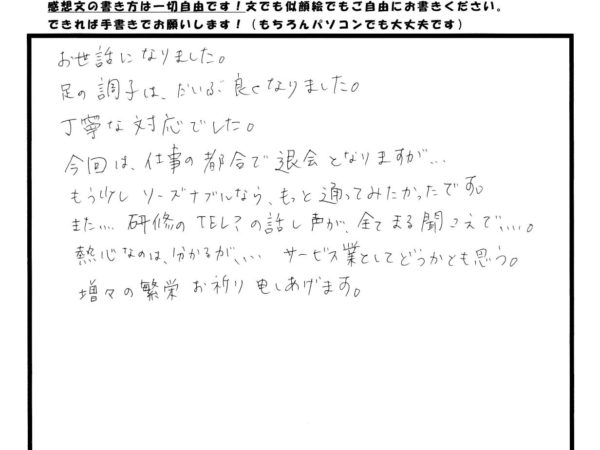 感想文の書き方は一切自由です！文でも似顔絵でもご自由にお書きください。
できれば手書きでお願いします！（もちろんパソコンでも大丈夫です）
お世話になりました。
足の調子は、だいぶ良くなりました。
丁寧な対応でした。
今回は、仕事の都合で退会となりますが…
もう少しリーズナブルなら、もっと通ってみたかったです。
また…. 研修のTEL?の話し声が、全てまる聞こえで….。
熱心なのは、分かるが、… サービス業としてどうかとも思う。
増々の繁栄お祈り申しあげます。